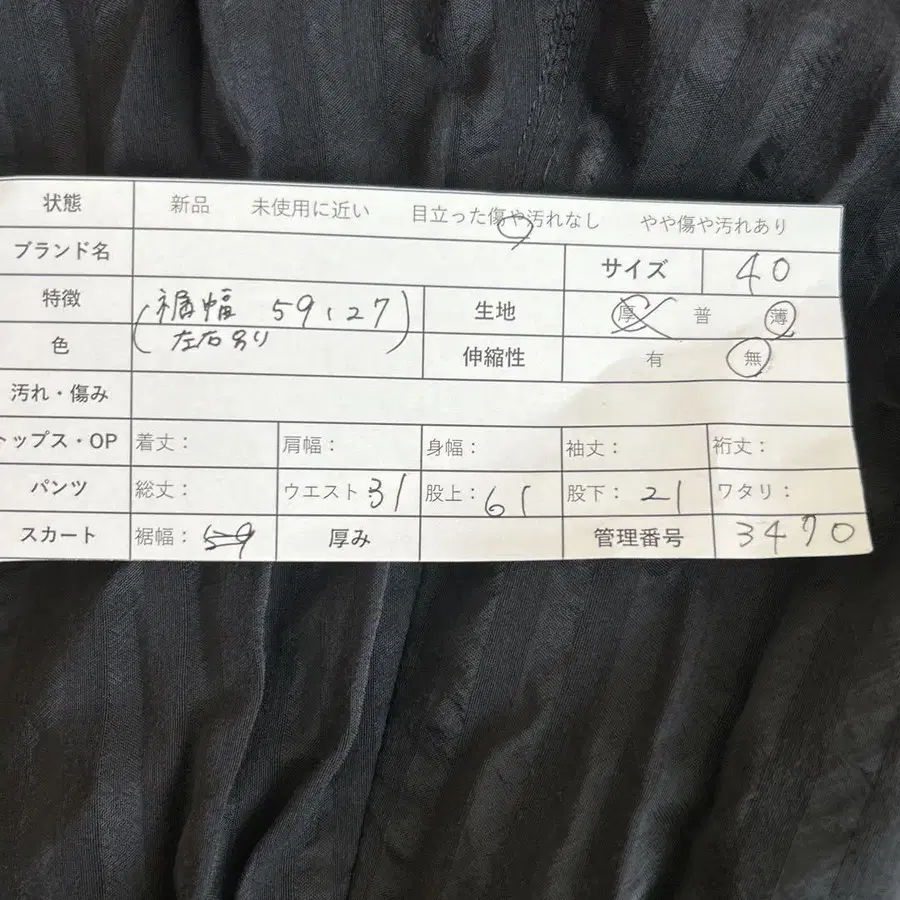 状態 新品 未使用に近い 目立った傷や汚れなし やや傷や汚れあり
ブランド名 サイズ 40
特徴 裾幅 59、27 生地 厚 普 薄
色 左右あり 伸縮性 有 無
汚れ・傷み
トップス・OP 着丈: 肩幅: 身幅: 袖丈: 裄丈:
パンツ 総丈: ウエスト 31 股上: 61 股下: 21 ワタリ:
スカート 裾幅: 59 厚み 管理番号 3470